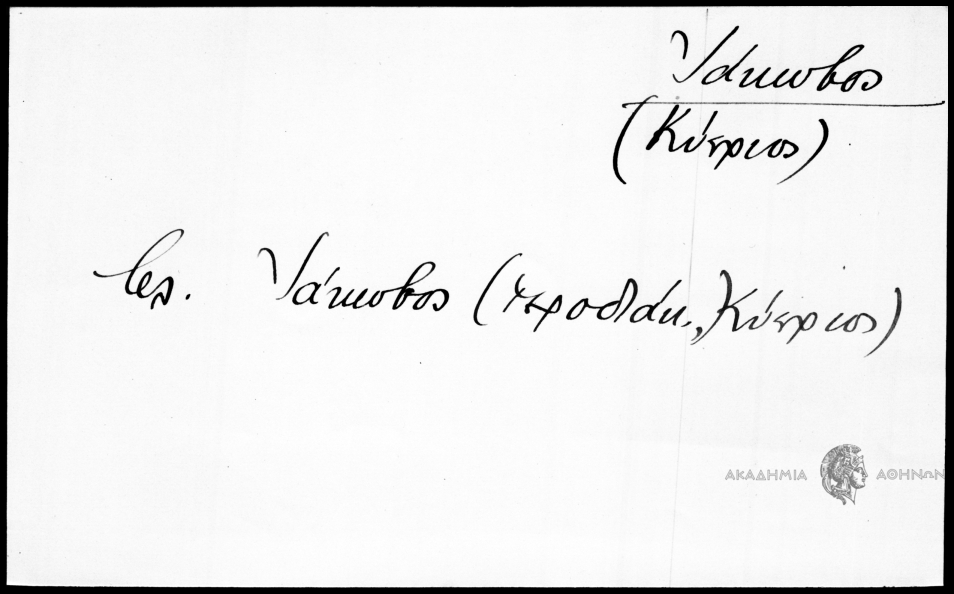 Ἰάκωβος
(Κύπριος)
βλ. Ἰάκωβος (ἱεροδιάκ., Κύπριος)
ΑΚΑΔΗΜΙΑ ΑΘΗΝΩΝ